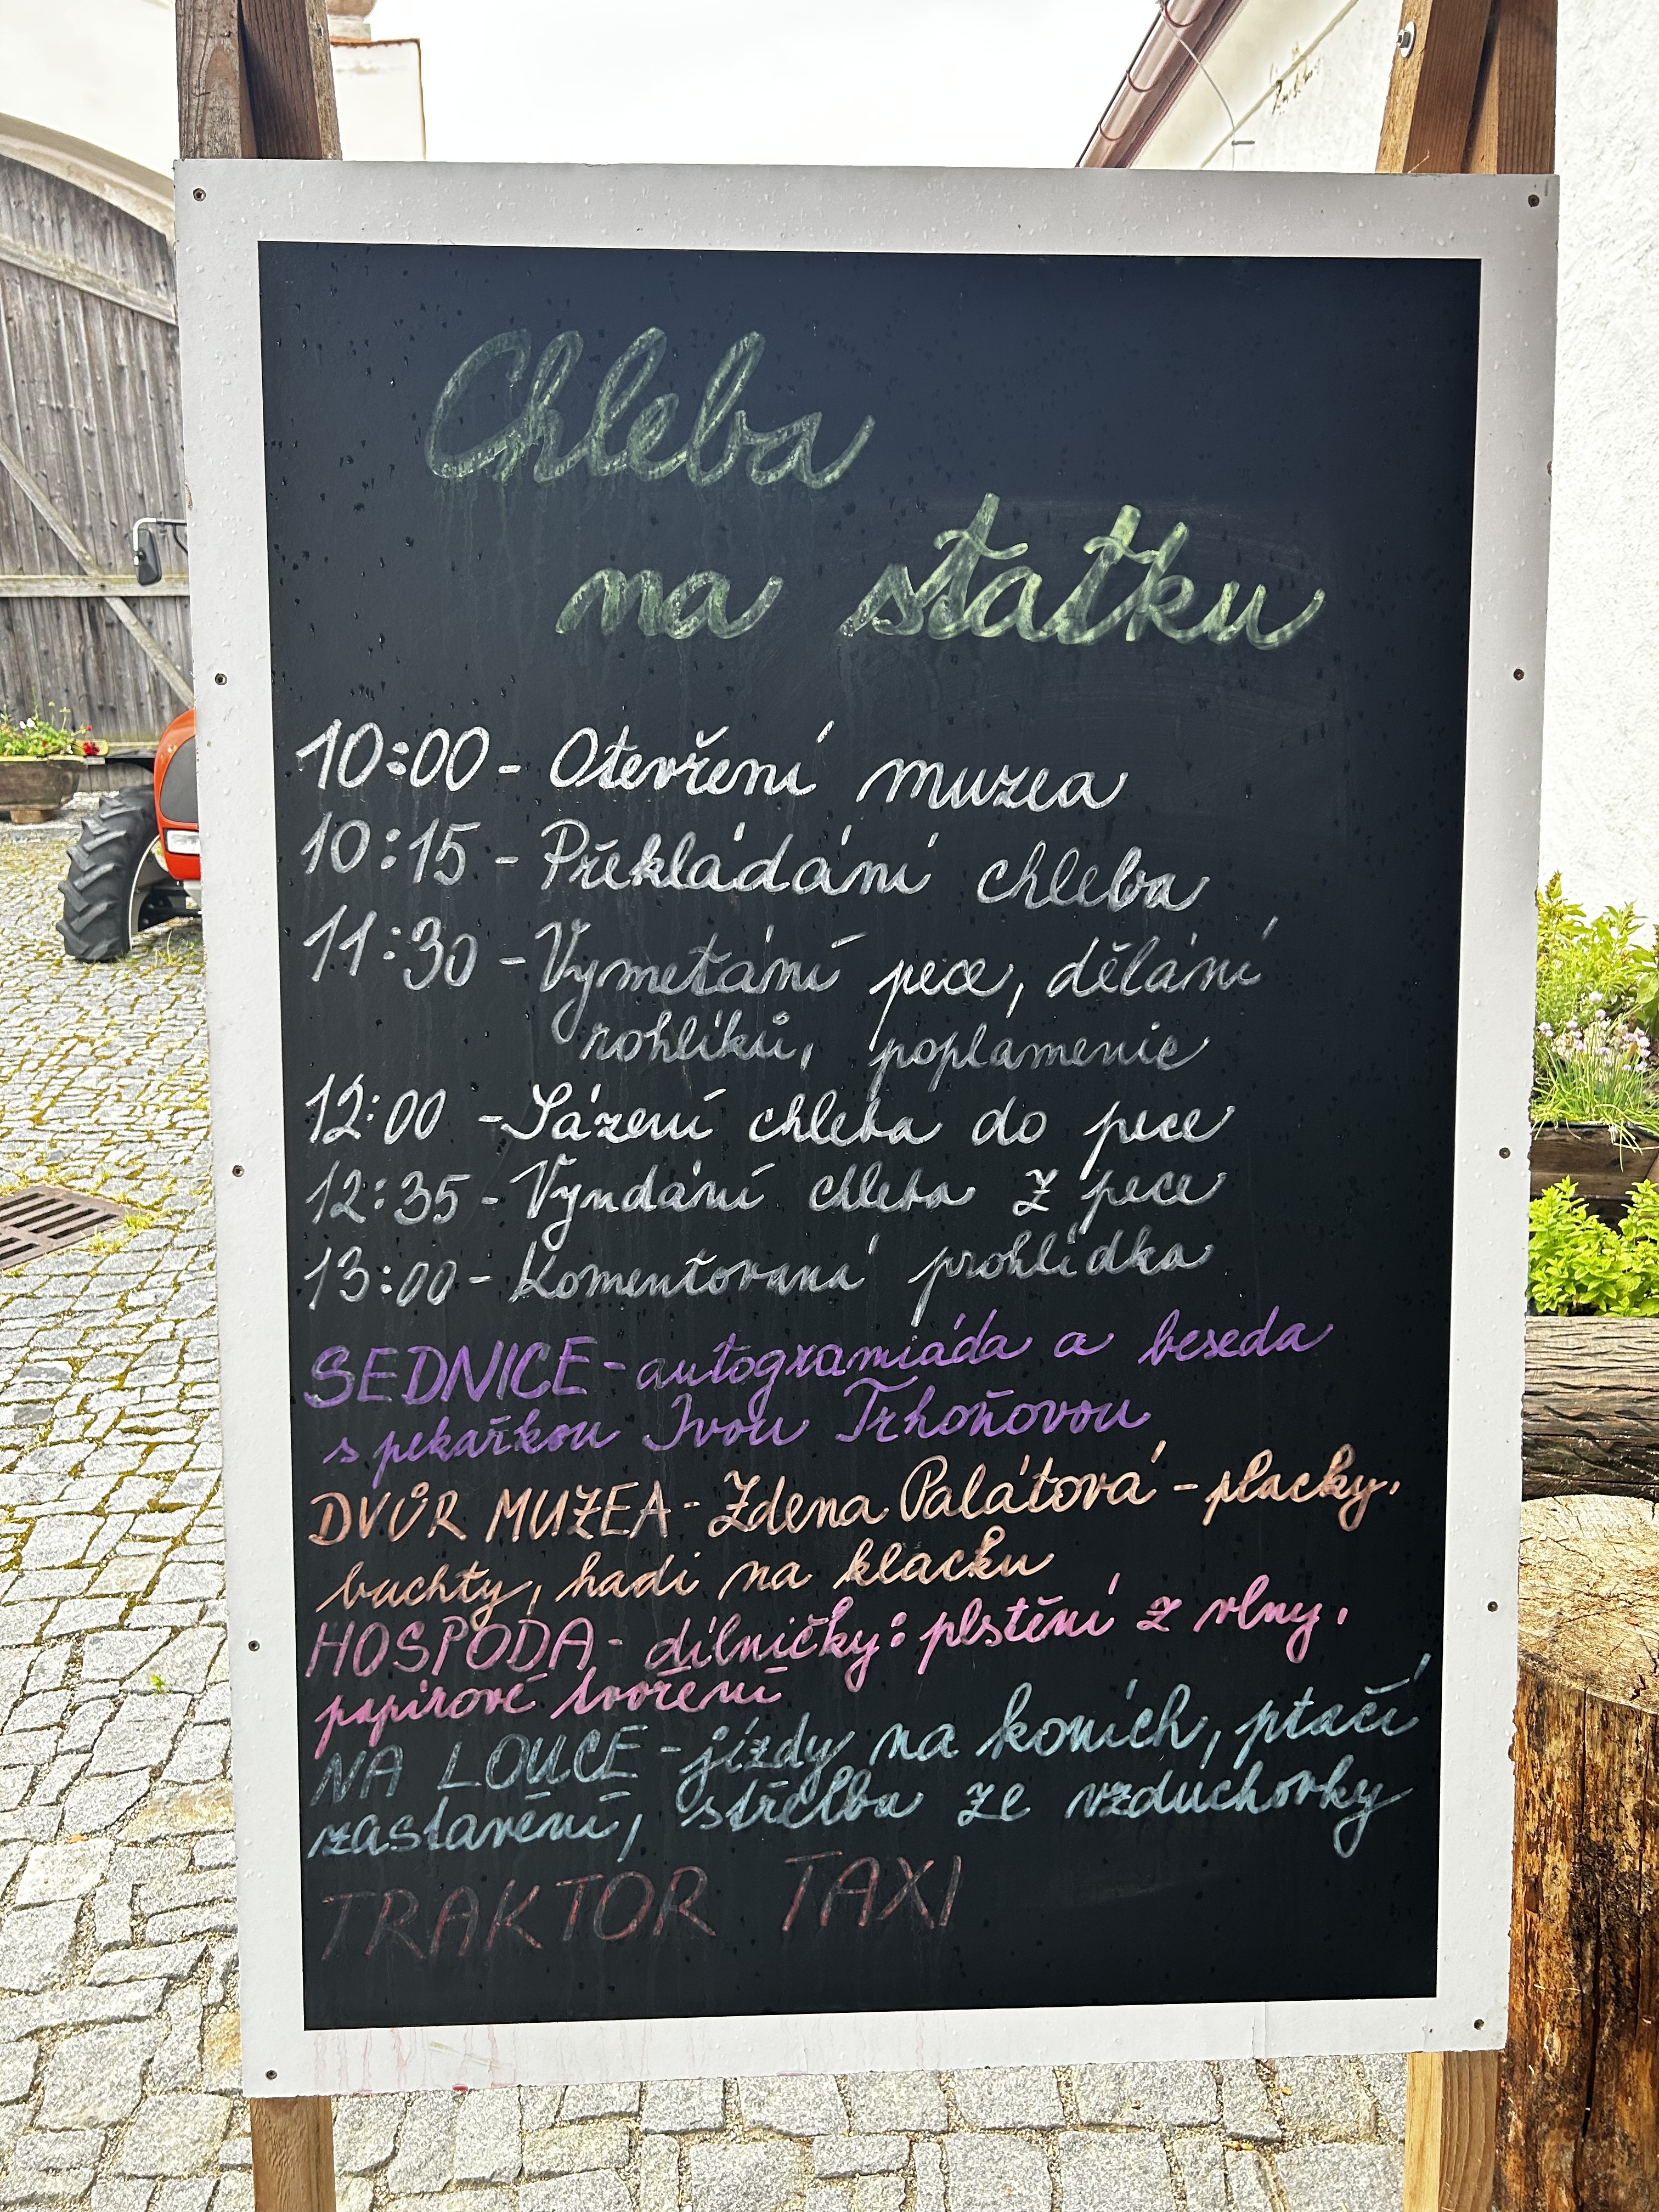 Chleba
na statku
10:00 - Otevření muzea
10:15 - Překládání chleba
11:30 - Vymetání pece, dělání
rohlíků, poplamenic
12:00 - Sázení chleba do pece
12:35 - Vyndání chleba z pece
13:00 - Komentovaná prohlídka
SEDNICE - autogramiáda a beseda
s pekařkou Ivou Trhoňovou
DVŮR MUZEA - Zdena Palátová - placky,
buchty, hadi na klacku
HOSPODA - dílničky: plstění z vlny,
papírové tvoření
NA LOUCE - jízdy na koních, ptačí
zastavení, střelba ze vzduchovky
TRAKTOR TAXI